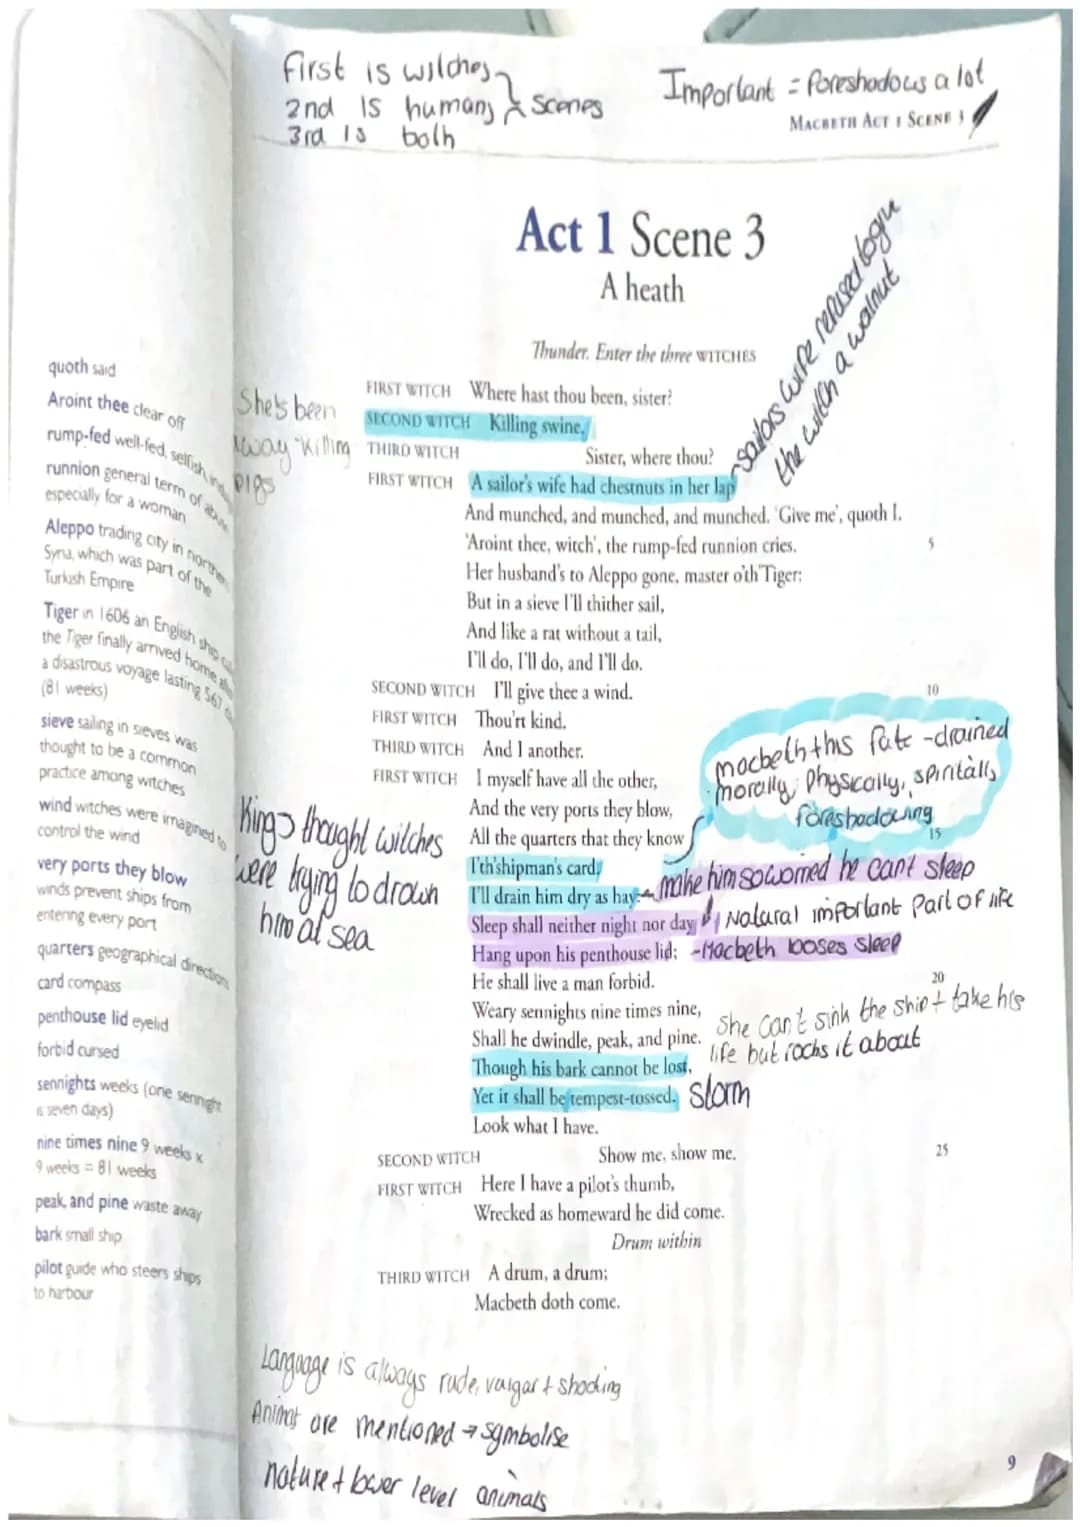 First is witches
2nd is humans } scenes
3rd is both
Important = foreshadows a lot
MACBETH ACT 1 SCENE 3
Act 1 Scene 3
A heath
Thunder. Enter the three WITCHES
sailors wife refused to give
the witch a walnut
FIRST WITCH Where hast thou been, sister?
SECOND WITCH Killing swine.
THIRD WITCH Sister, where thou?
FIRST WITCH A sailor's wife had chestnuts in her lap
And munched, and munched, and munched. 'Give me', quoth I.
'Aroint thee, witch', the rump-fed runnion cries. 5
Her husband's to Aleppo gone, master o'th'Tiger:
But in a sieve I'll thither sail,
And like a rat without a tail,
I'll do, I'll do, and I'll do.
SECOND WITCH I'll give thee a wind. 10
FIRST WITCH Thou'rt kind.
THIRD WITCH And I another.
FIRST WITCH I myself have all the other,
And the very ports they blow,
All the quarters that they know 15
I'th'shipman's card.
I'll drain him dry as hay:
Sleep shall neither night nor day
Hang upon his penthouse lid;
He shall live a man forbid. 20
Weary sennights nine times nine,
Shall he dwindle, peak, and pine.
Though his bark cannot be lost,
Yet it shall be tempest-tossed.
Look what I have.
SECOND WITCH Show me, show me. 25
FIRST WITCH Here I have a pilot's thumb,
Wrecked as homeward he did come.
Drum within
THIRD WITCH A drum, a drum;
Macbeth doth come.
She's been
away killing
pigs
Kings thought witches
were trying to drown
him at sea
macbeth this fate - drained
morally, Physically, spiritally
foreshadowing
make him so worried he can't sleep
Natural important Part of life
-Macbeth looses sleep
She can't sink the ship + take his
life but rocks it about
Storm
quoth said
Aroint thee clear off
rump-fed well-fed, selfish,
runnion general term of abuse
especially for a woman
Aleppo trading city in northern
Syria, which was part of the
Turkish Empire
Tiger in 1606 an English ship
the Tiger finally arrived home
a disastrous voyage lasting 567
(81 weeks)
sieve sailing in sieves was
thought to be a common
practice among witches
wind witches were imagined to
control the wind
very ports they blow
winds prevent ships from
entering every port
quarters geographical directions
card compass
penthouse lid eyelid
forbid cursed
sennights weeks (one sennight
is seven days)
nine times nine 9 weeks x
9 weeks = 81 weeks
peak, and pine waste away
bark small ship
pilot guide who steers ships
to harbour
Language is always rude, vulgar + shocking
Animal are mentioned → symbolise
nature + lower level animals
9